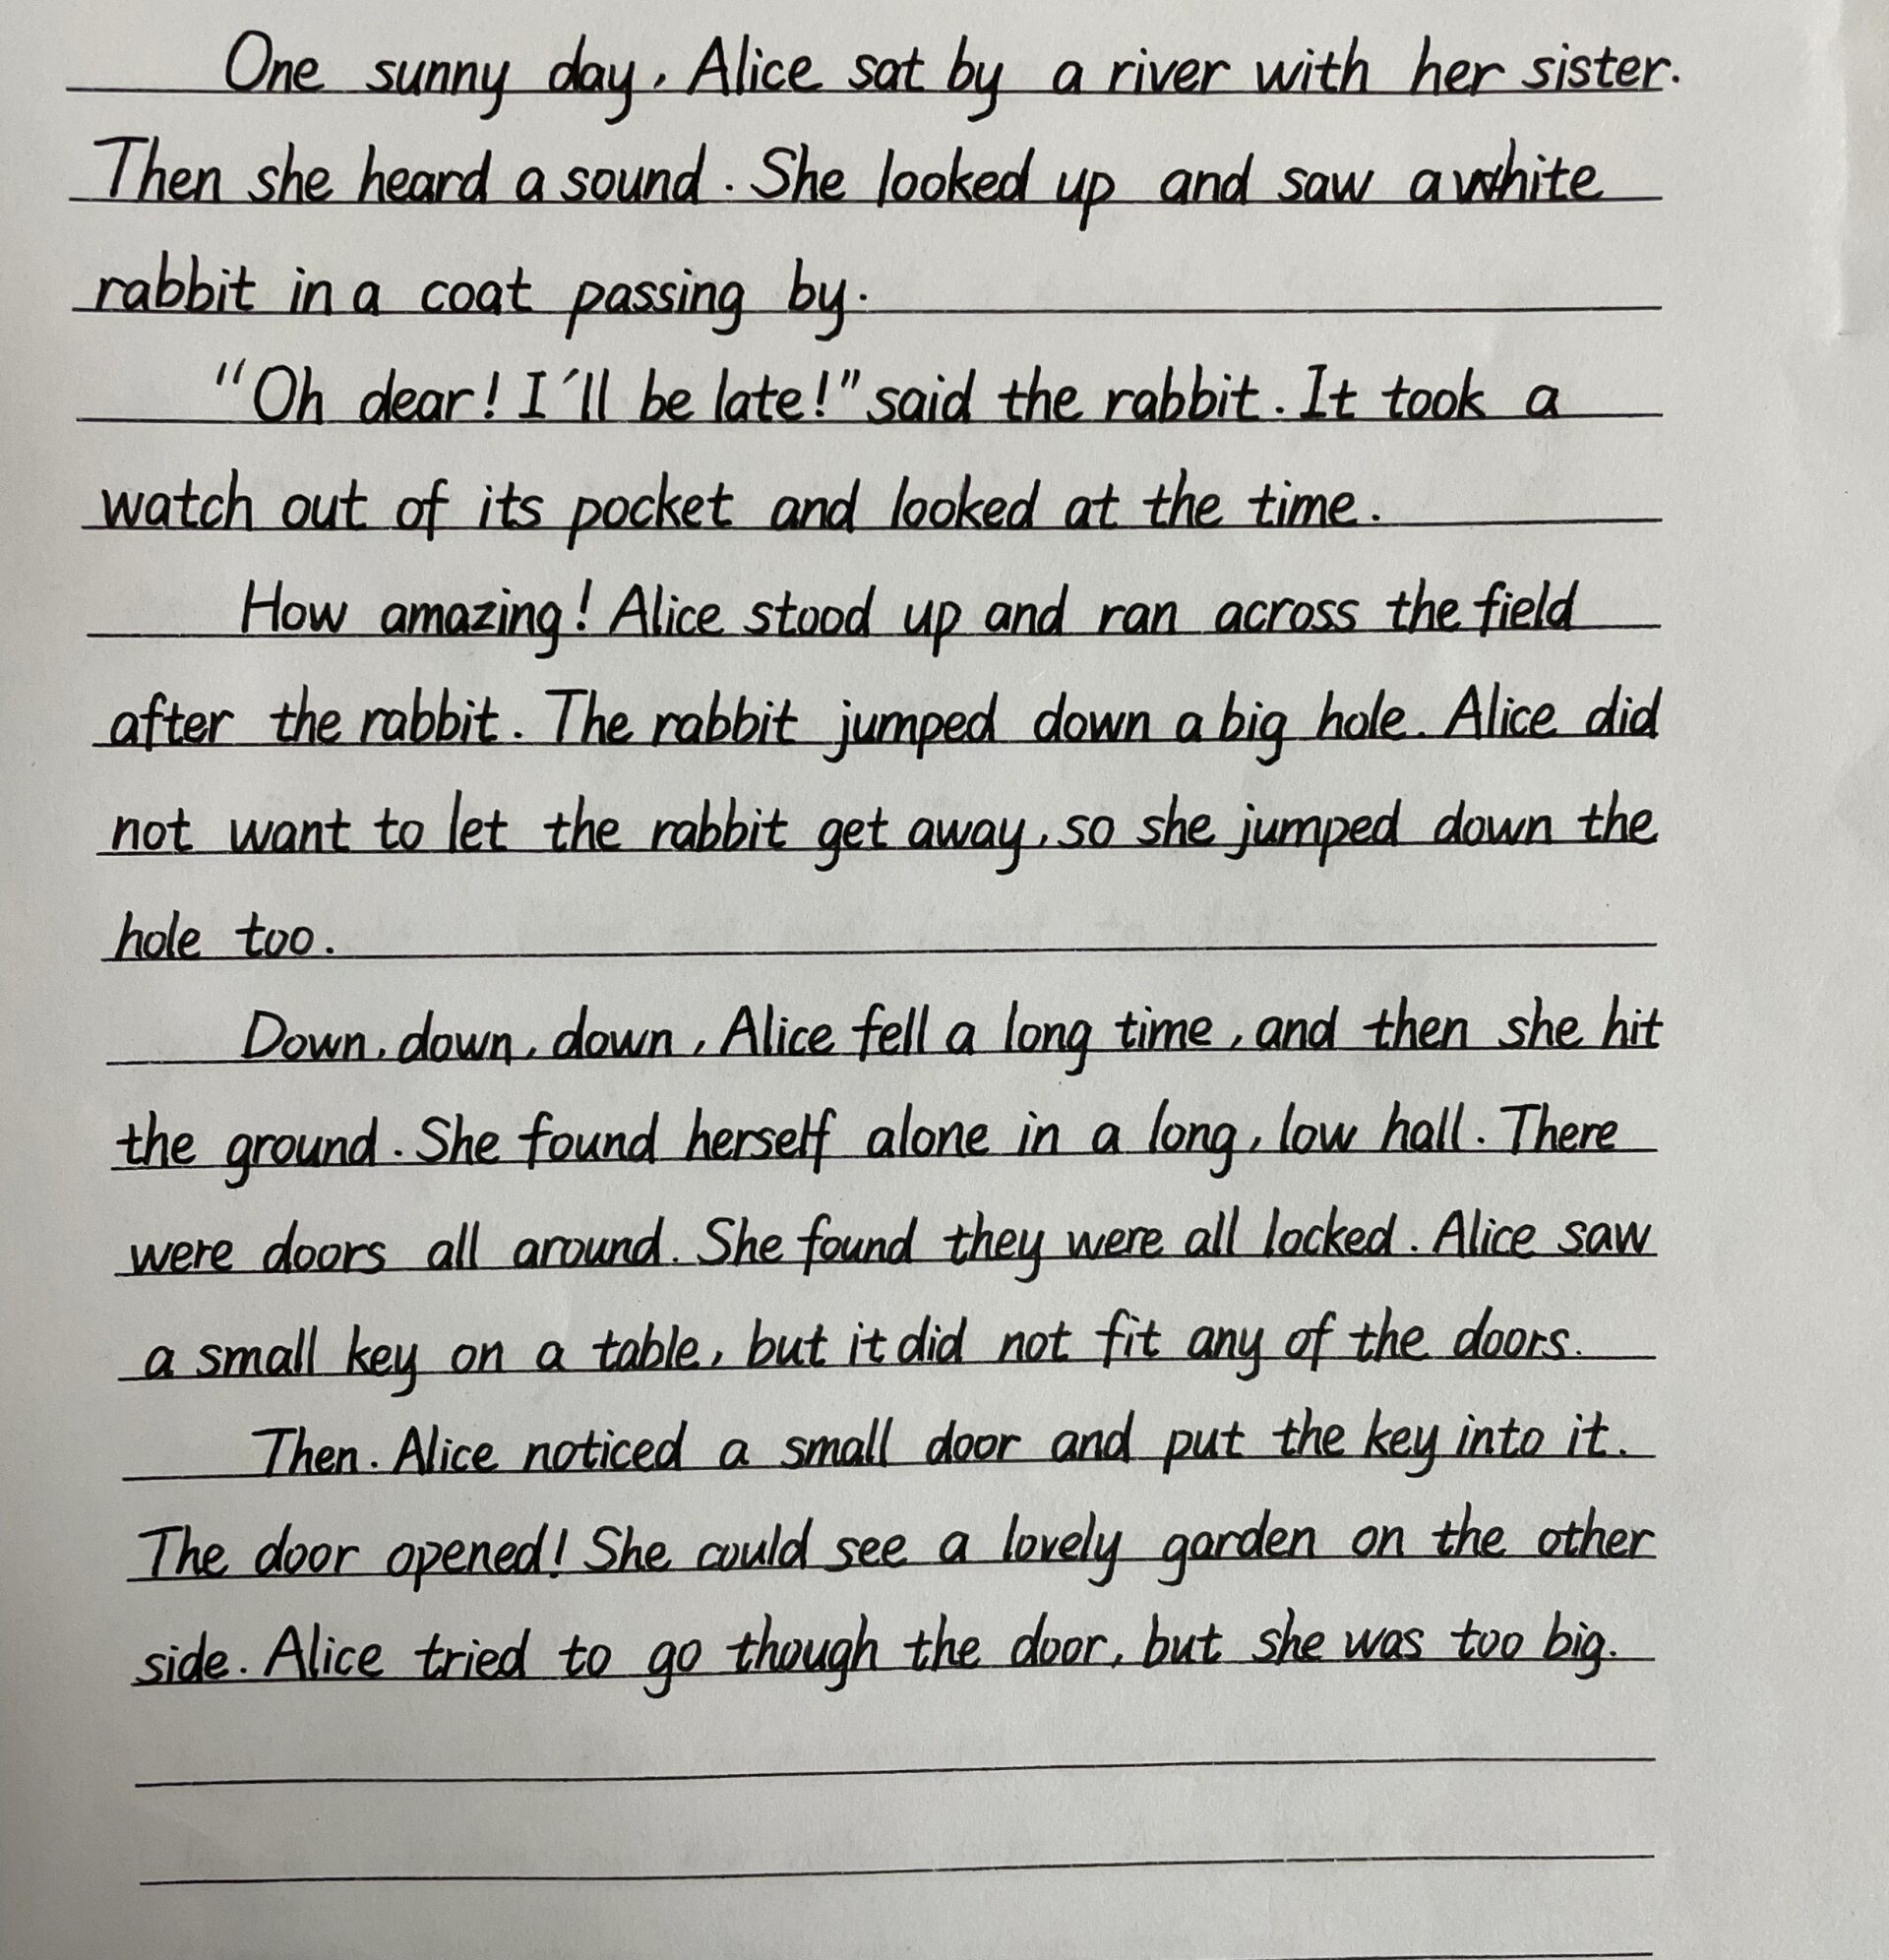 One sunny day, Alice sat by a river with her sister.
Then she heard a sound. She looked up and saw a white
rabbit in a coat passing by.
"Oh dear! I'll be late!" said the rabbit. It took a
watch out of its pocket and looked at the time.
How amazing! Alice stood up and ran across the field
after the rabbit. The rabbit jumped down a big hole. Alice did
not want to let the rabbit get away, so she jumped down the
hole too.
Down, down, down, Alice fell a long time, and then she hit
the ground. She found herself alone in a long, low hall. There
were doors all around. She found they were all locked. Alice saw
a small key on a table, but it did not fit any of the doors.
Then. Alice noticed a small door and put the key into it.
The door opened! She could see a lovely garden on the other
side. Alice tried to go though the door, but she was too big.